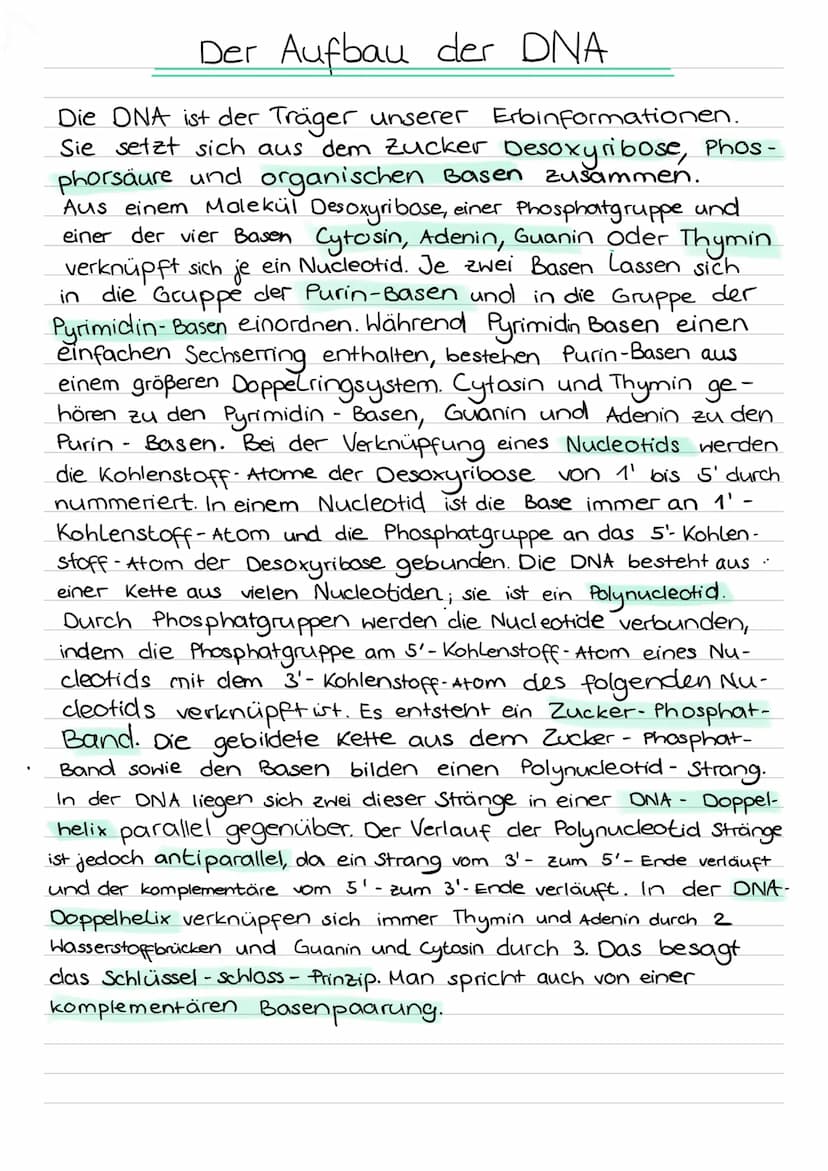 Der Aufbau der DNA
Die DNA ist der Träger unserer Erbinformationen.
Sie setzt sich aus dem Zucker Desoxyribose, Phos-
phorsäure und organischen Basen zusammen.
Aus einem Molekül Desoxyribose, einer Phosphatgruppe und
einer der vier Basen Cytosin, Adenin, Guanin oder Thymin
verknüpft sich je ein Nucleotid. Je zwei Basen lassen sich
in die Gruppe der Purin-Basen und in die Gruppe der
Pyrimidin-Basen einordnen. Während Pyrimidin Basen einen
einfachen Sechserring enthalten, bestehen Purin-Basen aus
einem größeren Doppelringsystem. Cytosin und Thymin ge-
hören zu den Pyrimidin - Basen, Guanin und Adenin zu den
Purin - Basen. Bei der Verknüpfung eines Nucleotids werden
die Kohlenstoff-Atome der Desoxyribose von 1' bis 5' durch
nummeriert. In einem Nucleotid ist die Base immer an 1'-
Kohlenstoff-Atom und die Phosphatgruppe an das 5'-Kohlen-
stoff-Atom der Desoxyribose gebunden. Die DNA besteht aus
einer Kette aus vielen Nucleotiden; sie ist ein Polynucleotid.
Durch Phosphatgruppen werden die Nucleotide verbunden,
indem die Phosphatgruppe am 5'-Kohlenstoff-Atom eines Nu-
cleotids mit dem 3'-Kohlenstoff-Atom des folgenden Nu-
cleotids verknüpft ist. Es entsteht ein Zucker-Phosphat-
Band. Die gebildete Kette aus dem Zucker - Phosphat-
Band sowie den Basen bilden einen Polynucleotid - Strang.
In der DNA liegen sich zwei dieser Stränge in einer DNA - Doppel-
helix parallel gegenüber. Der Verlauf der Polynucleotid Stränge
ist jedoch antiparallel, da ein Strang vom 3'- zum 5'-Ende verläuft
und der komplementäre vom 5'-zum 3'-Ende verläuft. In der DNA-
Doppelhelix verknüpfen sich immer Thymin und Adenin durch 2
Wasserstoffbrücken und Guanin und Cytosin durch 3. Das besagt
das Schlüssel-schloss-Prinzip. Man spricht auch von einer
komplementären Basenpaarung.